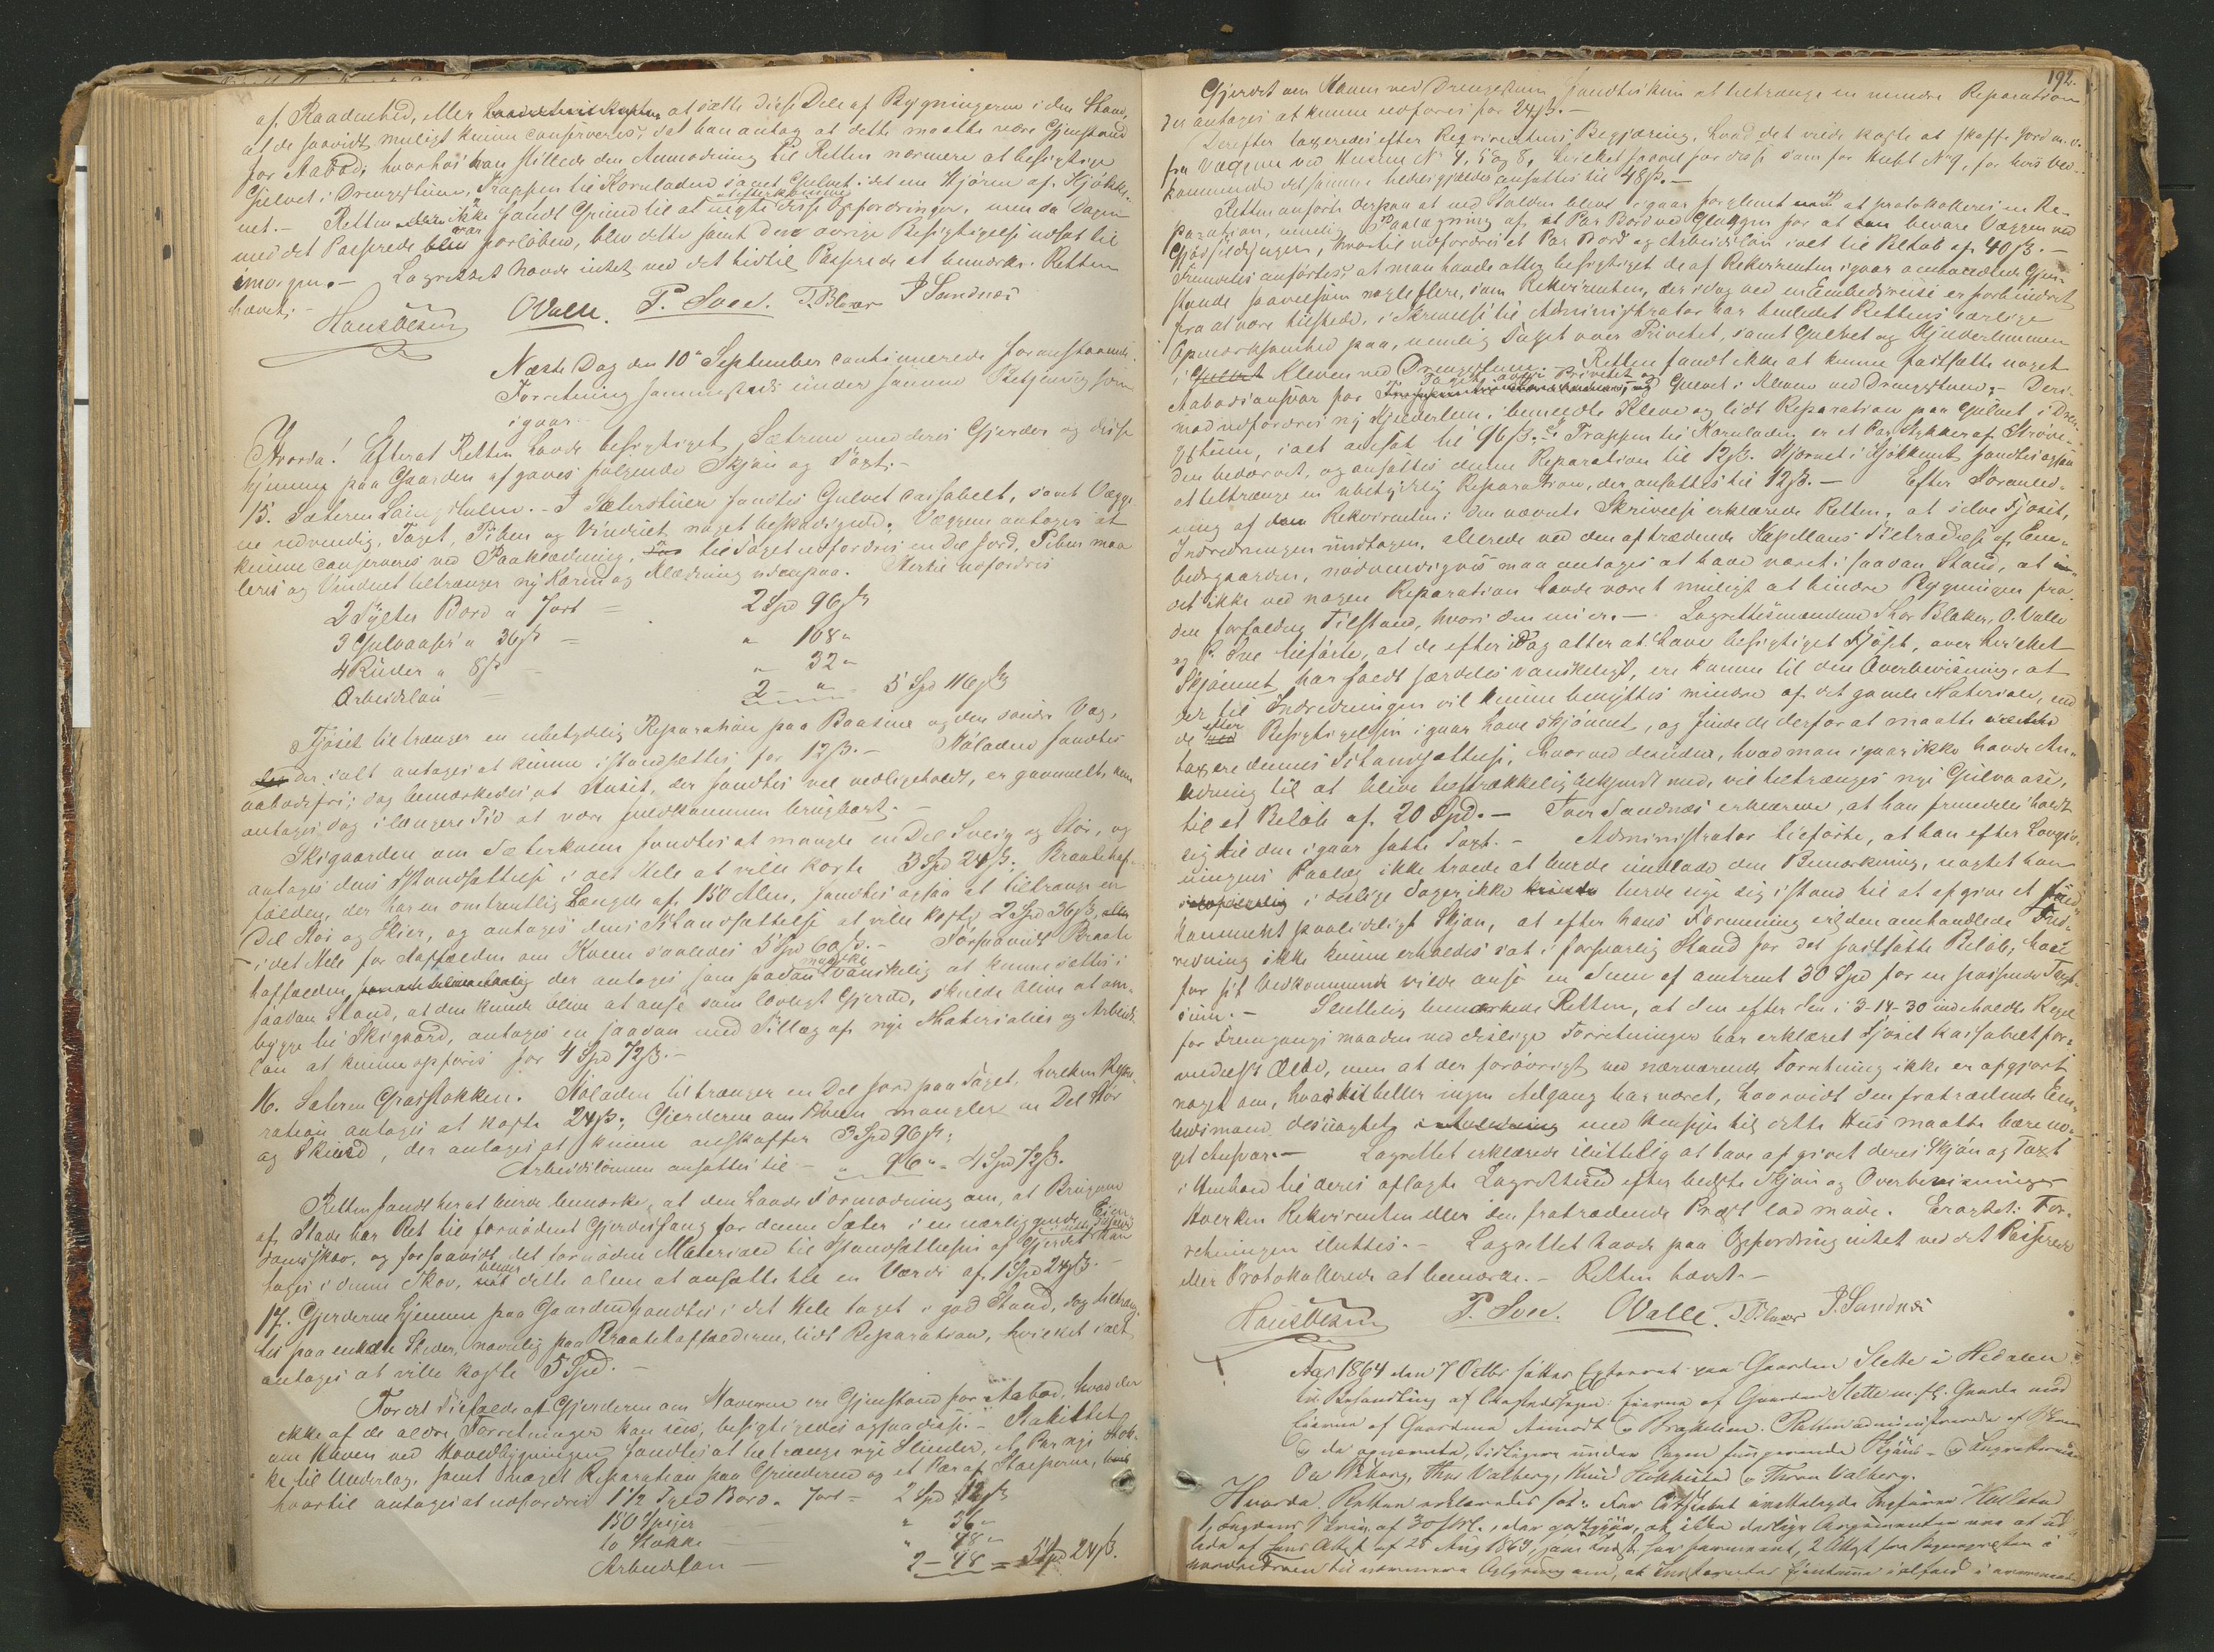 af Raadenhed, eller at sætte disse Dele af Bygningerne i den Stand,
at de saavidt muligt kunne conserveres, det han antog at dette maatte være Gjenstand
for Aabod; hvorhos han stillede den Anmodning til Retten nærmere at besigtige
Gulvet i Drengestuen, Trappen til Kornladen samt Gulvet i det ene Hjørne af Kjøkke-
net. - Retten fandt ikke Grund til at nægte disse Opfordringer, men da Dagen
med det Passerede var forløben, blev dette samt den øvrige Besigtigelse udsat til
imorgen. - Lagrettet havde intet ved det hidtil Passerede at bemærke. Retten
hævet. -
Hans Olsen OValle. P. Sven. T. Blaker P Sandnæs
Næste Dag den 10de September continuerede foranstaaende
Forretning sammesteds under samme Betjening som
igaar.
Hvorda! Efterat Retten havde besigtiget Sætrene med deres Gjerder og disse
hjemme paa Gaarden afgaves følgende Skjøn og Taxt. -
15. Sæteren - I Sæterstuen fandtes Gulvet cassabelt, samt Vægge-
ne udvendig, Taget, Piben og Vinduet noget beskadigede. Væggene antages at
kunne conserveres ved Paaklædning, til Taget udfordres en Del Jord, Piben maa
leres og Vinduet tiltrænger ny Karm og Klædning udenpaa. Hertil udfordres
2 Tylter Bord a 7ort = 2 Spd 96 ß
3 Gulvaaser a 36 ß = " 108 "
4 Ruder a 8 ß - " 32 "
Arbeidsløn - 2 - " 5 Spd 116 ß
Fjøset tiltrænger en ubetydelig Reparation paa Baasene og den søndre Væg,
der ialt antages at kunne istandsættes for 12 ß. - Høladen fandtes
aabodsfri; dog bemærkedes, at Huset, der fandtes vel vedligeholdt, er gammelt, men
antages dog i længere Tid at være fuldkommen brugbart. -
Skigaarden om Sæterkven fandtes at mangle en Del Sveig og Stør, og
antages dens Istandsættelse i det Hele at ville koste 3 Spd 24 ß. Braatehaf-
fælden, der har en omtrentlig Længde af 150 Alen, fandtes ogsaa at tiltrænge en
Del Stør og Skier, og antages dens Istandsættelse at ville koste 2 Spd 36 ß,
i det Hele for Haffælden om Kven saaledes 5 Spd 60 ß. - Forsaavidt Braate
haffælden der antages som saadan vanskelig at kunne sættes i
saadan Stand, at den kunde blive at anse som lovligt Gjerde, skulde blive at om-
bygge til Skigaard, antages en saadan med Tillæg af nye Materialier og Arbeids
løn at kunne opføres for 4 Spd 72 ß. -
16. Sæteren Grasstokken. Høladen tiltrænger en Del Jord paa Taget, hvilken Repa-
ration antages at koste 24 ß. Gjerderne om Kven mangler en Del Stør
og Skier, der antages at kunne anskaffes 3 Spd 96 ß;
Arbeidslønnen ansættes til - " 96 " 4 Spd 72 ß.
Retten fandt her at burde bemærke, at den havde Formodning om, at Brugeren
af Stave har Ret til fornødent Gjerdesfang for denne Sæter i en nærliggende Eien-
doms Skov, og forsaavidt det fornødne Materiale til Istandsættelsen af Gjerdet kan
tages i denne Skov, bliver dette alene at ansætte til en Værdi af 1 Spd 24 ß. -
17. Gjerderne hjemme paa Gaarden fandtes i det Hele taget i god Stand, dog tiltræng-
tes paa enkelte Steder, navnlig paa Braatehaffælderne, lidt Reparation, hvilket ialt
antages at ville koste 5 Spd. -
Forvist Tilfælde at Gjerderne om Haverne er Gjenstand for Aabod, hvad der
ikke af de ældre Forretninger kan sees, besigtigedes ogsaa disse. - Stakittet
om Haven ved Hovedbygningen fandtes at tiltrænge nye Stender, et Par nye Stok-
ke til Underlag, samt noget Reparation paa Grinderne og et Par af Stolperne,
hvortil antages at udfordres 1 1/2 Tylt Bord a 7ort = 2 Spd 12 ß
150 Spiger - " 36 "
10 Stokke - " 48 "
Arbeidsløn - 2 - 48 = 5 Spd 24 ß.
192.
Gjerdet om Haven ved Drengestuen fandtes kun at tiltrænge en mindre Reparation
der antages at kunne udføres for 24 ß. -
Derefter taxeredes efter Reqvirentens Begjæring, hvad det vilde koste at skaffe Jord m. v.
fra Væggene ved Husene No 4, 5 og 8, hvilket saavel for disse som for Huset No 9, for hvis Ved-
kommende det samme tiltrængtes ansattes til 48 ß. -
Retten anførte derpaa at ved Stalden blev igaar forglemt at protokolleres en Re-
paration, nemlig Paaslagning af et Par Bord ved Gluggen for at bevare Væggen ved
Gjødselsdyngen, hvortil udfordres et Par Bord og Arbeidsløn ialt til Beløb af 40 ß. -
Fremdeles anførtes, at man havde atter besigtiget de af Rekvirenten igaar omhandlede Gjen-
stande saavelsom nogle flere, som Rekvirenten, der idag ved en Embedsreise er forhindret
fra at være tilstede, i Skrivelse til Administrator har henledet Rettens særlige
Opmærksomhed paa, nemlig Taget over Privetet, samt Gulvet og Hjulerlemmen
i Kleven ved Drengestuen. Retten fandt ikke at kunne fastsætte noget
Aabodsansvar for Taget over Privetet og Gulvet i Kleven ved Drengestuen. - Deri-
mod udfordres ny i bemeldte Kleve og lidt Reparation paa Gulvet i Dren-
gestuen, ialt ansat til 96 ß. I Trappen til Kornladen er et Par Stykker af
den bedærvet, og ansættes denne Reparation til 12 ß. Hjørnet i Kjøkkenet fandtes ogsaa
at tiltrænge en ubetydelig Reparation, der ansattes til 12 ß. - Efter Foranled-
ning af Rekvirenten i den nævnte Skrivelse erklærede Retten, at selve Fjøset,
Indredningen undtagen, allerede ved den aftrædende Kapellans Tiltrædelse af Em-
bedsgaarden, nødvendigvis maa antages at have været i saadan Stand, at
det ikke ved nogen Reparation havde været muligt at hindre Bygningen fra
den forfaldne Tilstand, hvori den nu er. - Lagrettesmændene Thor Blaker, O. Valle
og P. Sve tilførte, at de efter idag atter at have besigtiget Fjøset, over hvilket
Skjønnet har faldt særdeles vanskeligt, ere komne til den Overbevisning, at
der til Indredningen vil kunne benyttes mindre af det gamle Materiale, end
de efter Besigtigelsen igaar have skjønnet, og fandt de derfor at maatte
taxere dennes Istandsættelse, hvorved desuden, hvad man igaar ikke havde An-
ledning til at blive tilstrækkelig bekjendt med, vil tiltrænges nye Gulvaaser,
til et Beløb af 20 Spd. - Iver Sandnæs erklærede, at han fremdeles holdt
sig til den igaar satte Taxt. - Administrator tilførte, at han efter Lovgiv-
ningens Paalæg ikke troede at burde undlade den Bemærkning, uagtet han
i deslige Sager ikke turde sige sig istand til at afgive et fuld-
komment paalideligt Skjøn, at efter hans Formening vil den omhandlede Ind-
redning ikke kunne erholdes sat i forsvarlig Stand for det fastsatte Beløb; han
for sit Vedkommende vilde anse en Sum af omtrent 30 Spd for en passende Taxt-
sum. - Sluttelig bemærkede Retten, at den efter den i 3-14-30 indeholdte Regel
for Fremgangsmaaden ved deslige Forretninger har erklæret Fjøset kassabelt for-
medelst Ælde, men at der forøvrigt ved nærværende Forretning ikke er afgjort
noget om, hvortil heller ingen Adgang har været, hvorvidt den fratrædende Em-
bedsmand desuagtet med Hensyn til dette Hus maatte bære no-
get Ansvar. - Lagrettet erklærede sluttelig at have afgivet deres Skjøn og Taxt
i Henhold til deres aflagte Lagrettesed efter bedste Skjøn og Overbevisning.
Hverken Rekvirenten eller den fratrædende Præst lod møde. Eragtet: For-
retningen sluttes. - Lagrettet havde paa Opfordring intet ved det Passerede
eller Protokollerede at bemærke. - Retten hævet. -
Hans Olsen P. Sven. OValle. T. Blaker P. Sandnæs
Aar 1864 den 7 Octbr sattes Extraret paa Gaarden Slette i Hedalen
til Behandling af Sagen Eierne af Gaarden Slette m. fl. Gaarde mod
Eierne af Gaardene Aamodt og Retten administreredes af
og de opnævnte, Sidstgivne under Sagen fungerende Skjøns- og Lagrettesmænd
Ole Viborg, Thor Valberg, Knud og Valberg.
Hvorda. Retten erklæredes sat.
af 28 Aug 1863,